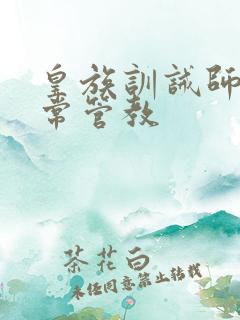 皇族訓誡師
常管教
茶花白
未经同意禁止转载